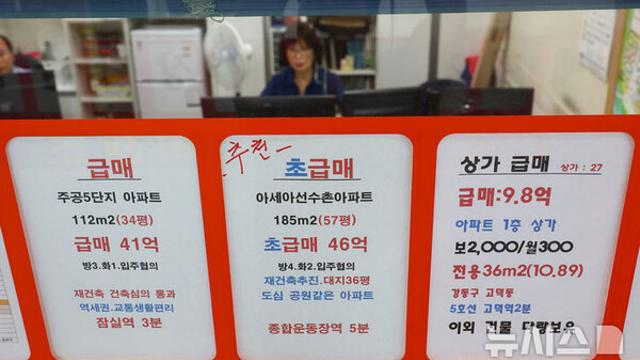 급매
주공5단지 아파트
112m2(34평)
급매 41억
방3.화1.입주협의
재건축 건축심의 통과
역세권.교통생활편리
잠실역 3분
추천
초급매
아세아선수촌아파트
185m2(57평)
초급매 46억
방4.화2.입주협의
재건축추진.대지36평
도심 공원같은 아파트
종합운동장역 5분
상가 급매 상가 : 27
급매:9.8억
아파트 1층 상가
보2,000/월300
전용36m2(10.89)
강동구 고덕동
5호선 고덕역2분
이외 건물 다량보유
뉴시스